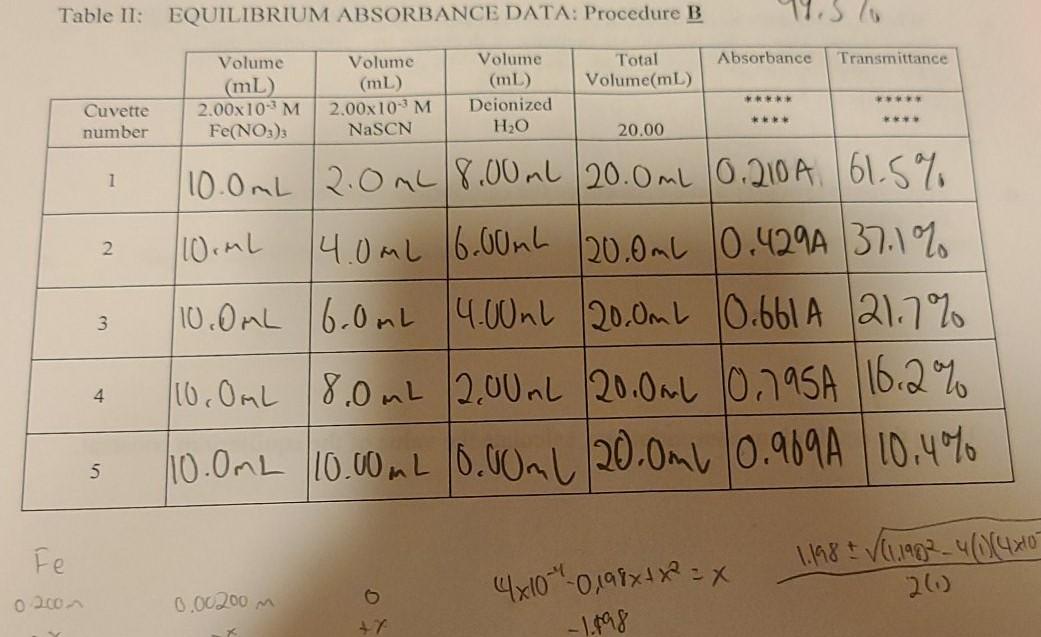 Table II: EQUILIBRIUM ABSORBANCE DATA: Procedure B
Volume (mL) Volume (mL) Volume (mL) Total Volume(mL) Absorbance Transmittance
Cuvette number 2.00x10⁻³ M Fe(NO₃)₃ 2.00x10⁻³ M NaSCN Deionized H₂O 20.00 ***** **** ***** ****
1 10.0mL 2.0mL 8.00mL 20.0mL 0.210A 61.5%
2 10.mL 4.0mL 6.00mL 20.0mL 0.429A 37.1%
3 10.0mL 6.0mL 4.00mL 20.0mL 0.661A 21.7%
4 10.0mL 8.0mL 2.00mL 20.0mL 0.795A 16.2%
5 10.0mL 10.00mL 0.00mL 20.0mL 0.969A 10.4%
Fe
0.200m 0.00200m 0
-x -x +x
4x10⁻⁴-0.198x+x² = x
1.198 ± √(1.198)²-4(1)(4x10⁻
2(1)